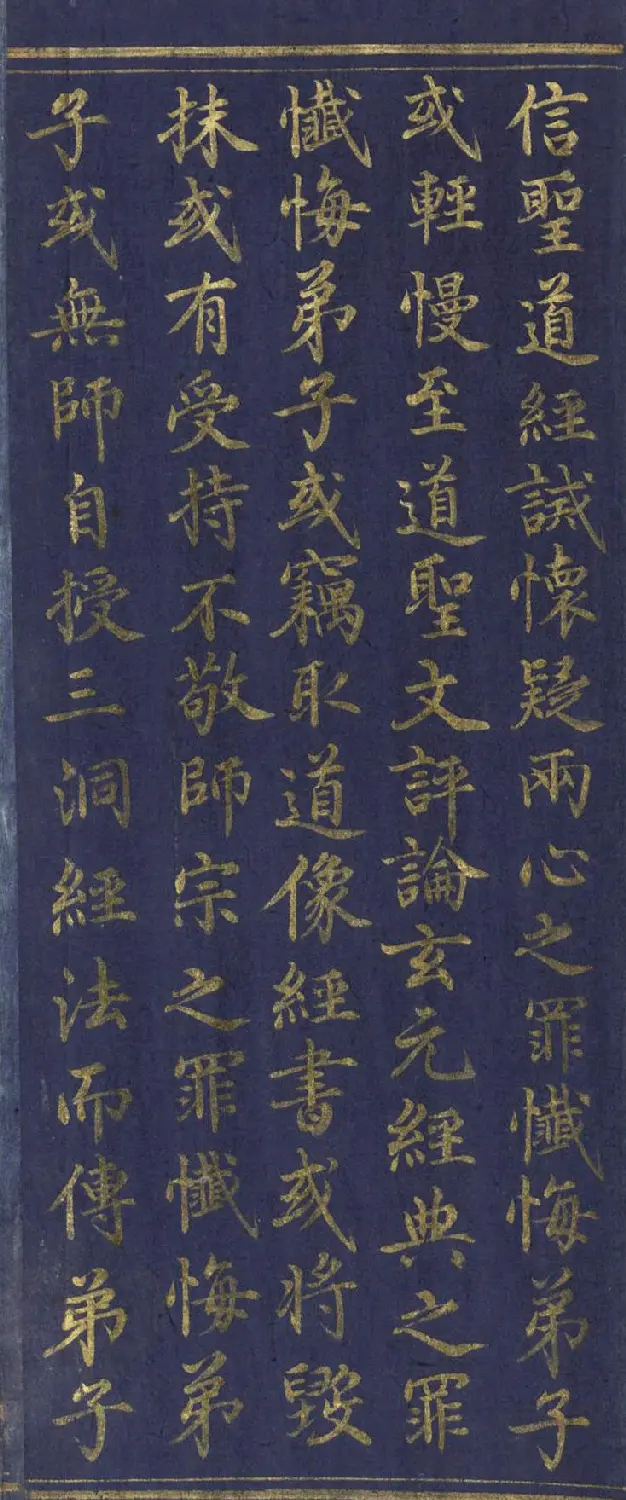 信聖道經誡懷疑兩心之罪懺悔弟子
或輕慢至道聖文評論玄元經典之罪
懺悔弟子或竊取道像經書或將毀
抹或有受持不敬師宗之罪懺悔弟
子或無師自授三洞經法而傳弟子